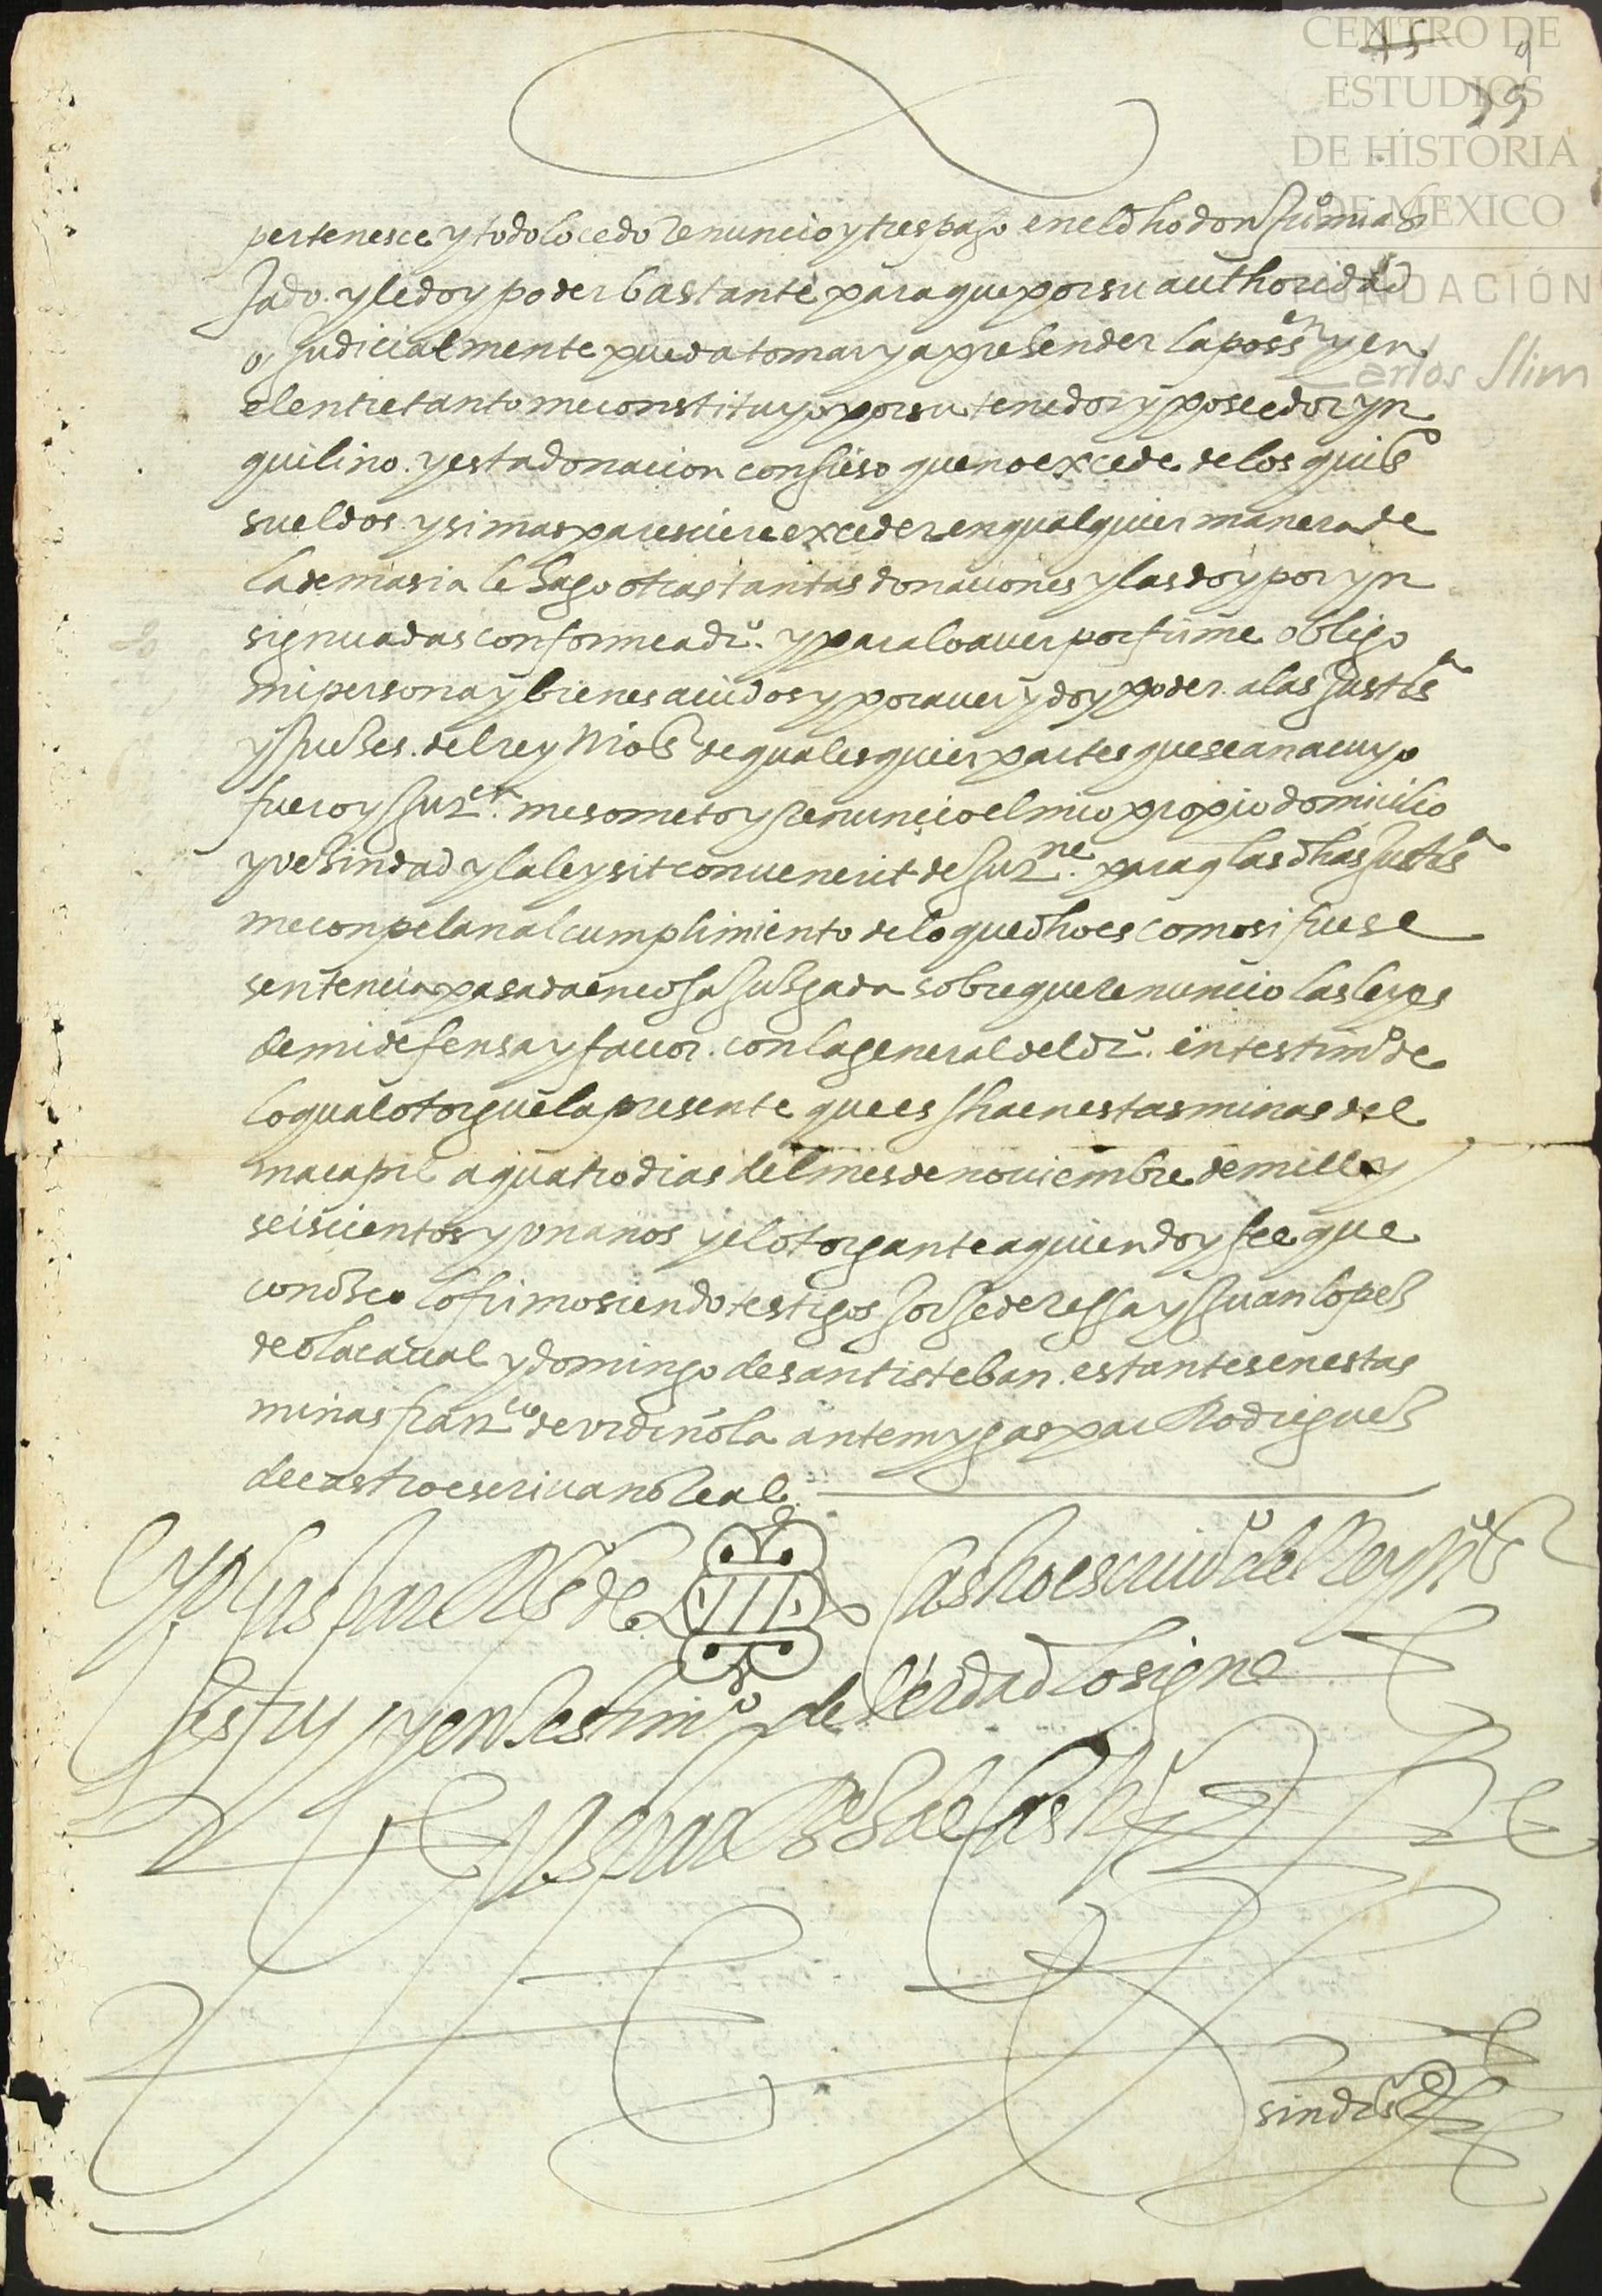 CENTRO DE
ESTUDIOS
DE HISTORIA
DE MEXICO
FUNDACIÓN
Carlos Slim
45
pertenesce y todo lo cedo renuncio y trespaso en el dho don
jado. y le doy poder bastante para que por su authoridad
o judicialmente pueda tomar y aprehender la poss.on y en
el entretanto me constituyo por su tenedor y poseedor yn
quilino. y esta donacion confieso que no excede de los quis.
sueldos y si mas paresciere exceder en qualquier manera de
la demasia le hago otras tantas donaciones y las doy por yn
signuadas conforme a dr.o y para lo aver por firme obligo
mi persona y bienes avidos y por aver y doy poder a las justi.as
y juezes del rey nro s.r de qualesquier partes que sean a cuyo
fuero y jur.on me someto y renuncio el mio propio domicilio
y vezindad y la ley sit convenerit de jur.ne para q las dhas justi.as
me conpelan al cumplimiento de lo que dho es como si fuese
sentencia pasada en cosa juzgada sobre que renuncio las leyes
de mi defensa y favor. con la general del dr.o en testim.o de
lo qual otorgue la presente que es fha en estas minas del
macapil a quatro dias del mes de noviembre de mill y
seiscientos y un anos y el otorgante a quien doy fee que
conozco lo firmo siendo testigos jorge de and y juan lopez
de olacaval y domingo de santisteban. estantes en estas
minas fran.co de urdiñola ante my gaspar Rodriguez
de castro escrivano Real
Yo Gaspar R.s de Castro escriu.o del Rey n.ro s.r
fuy y en testim.o de verdad lo signe
Gaspar R.s de Castro
sin drs